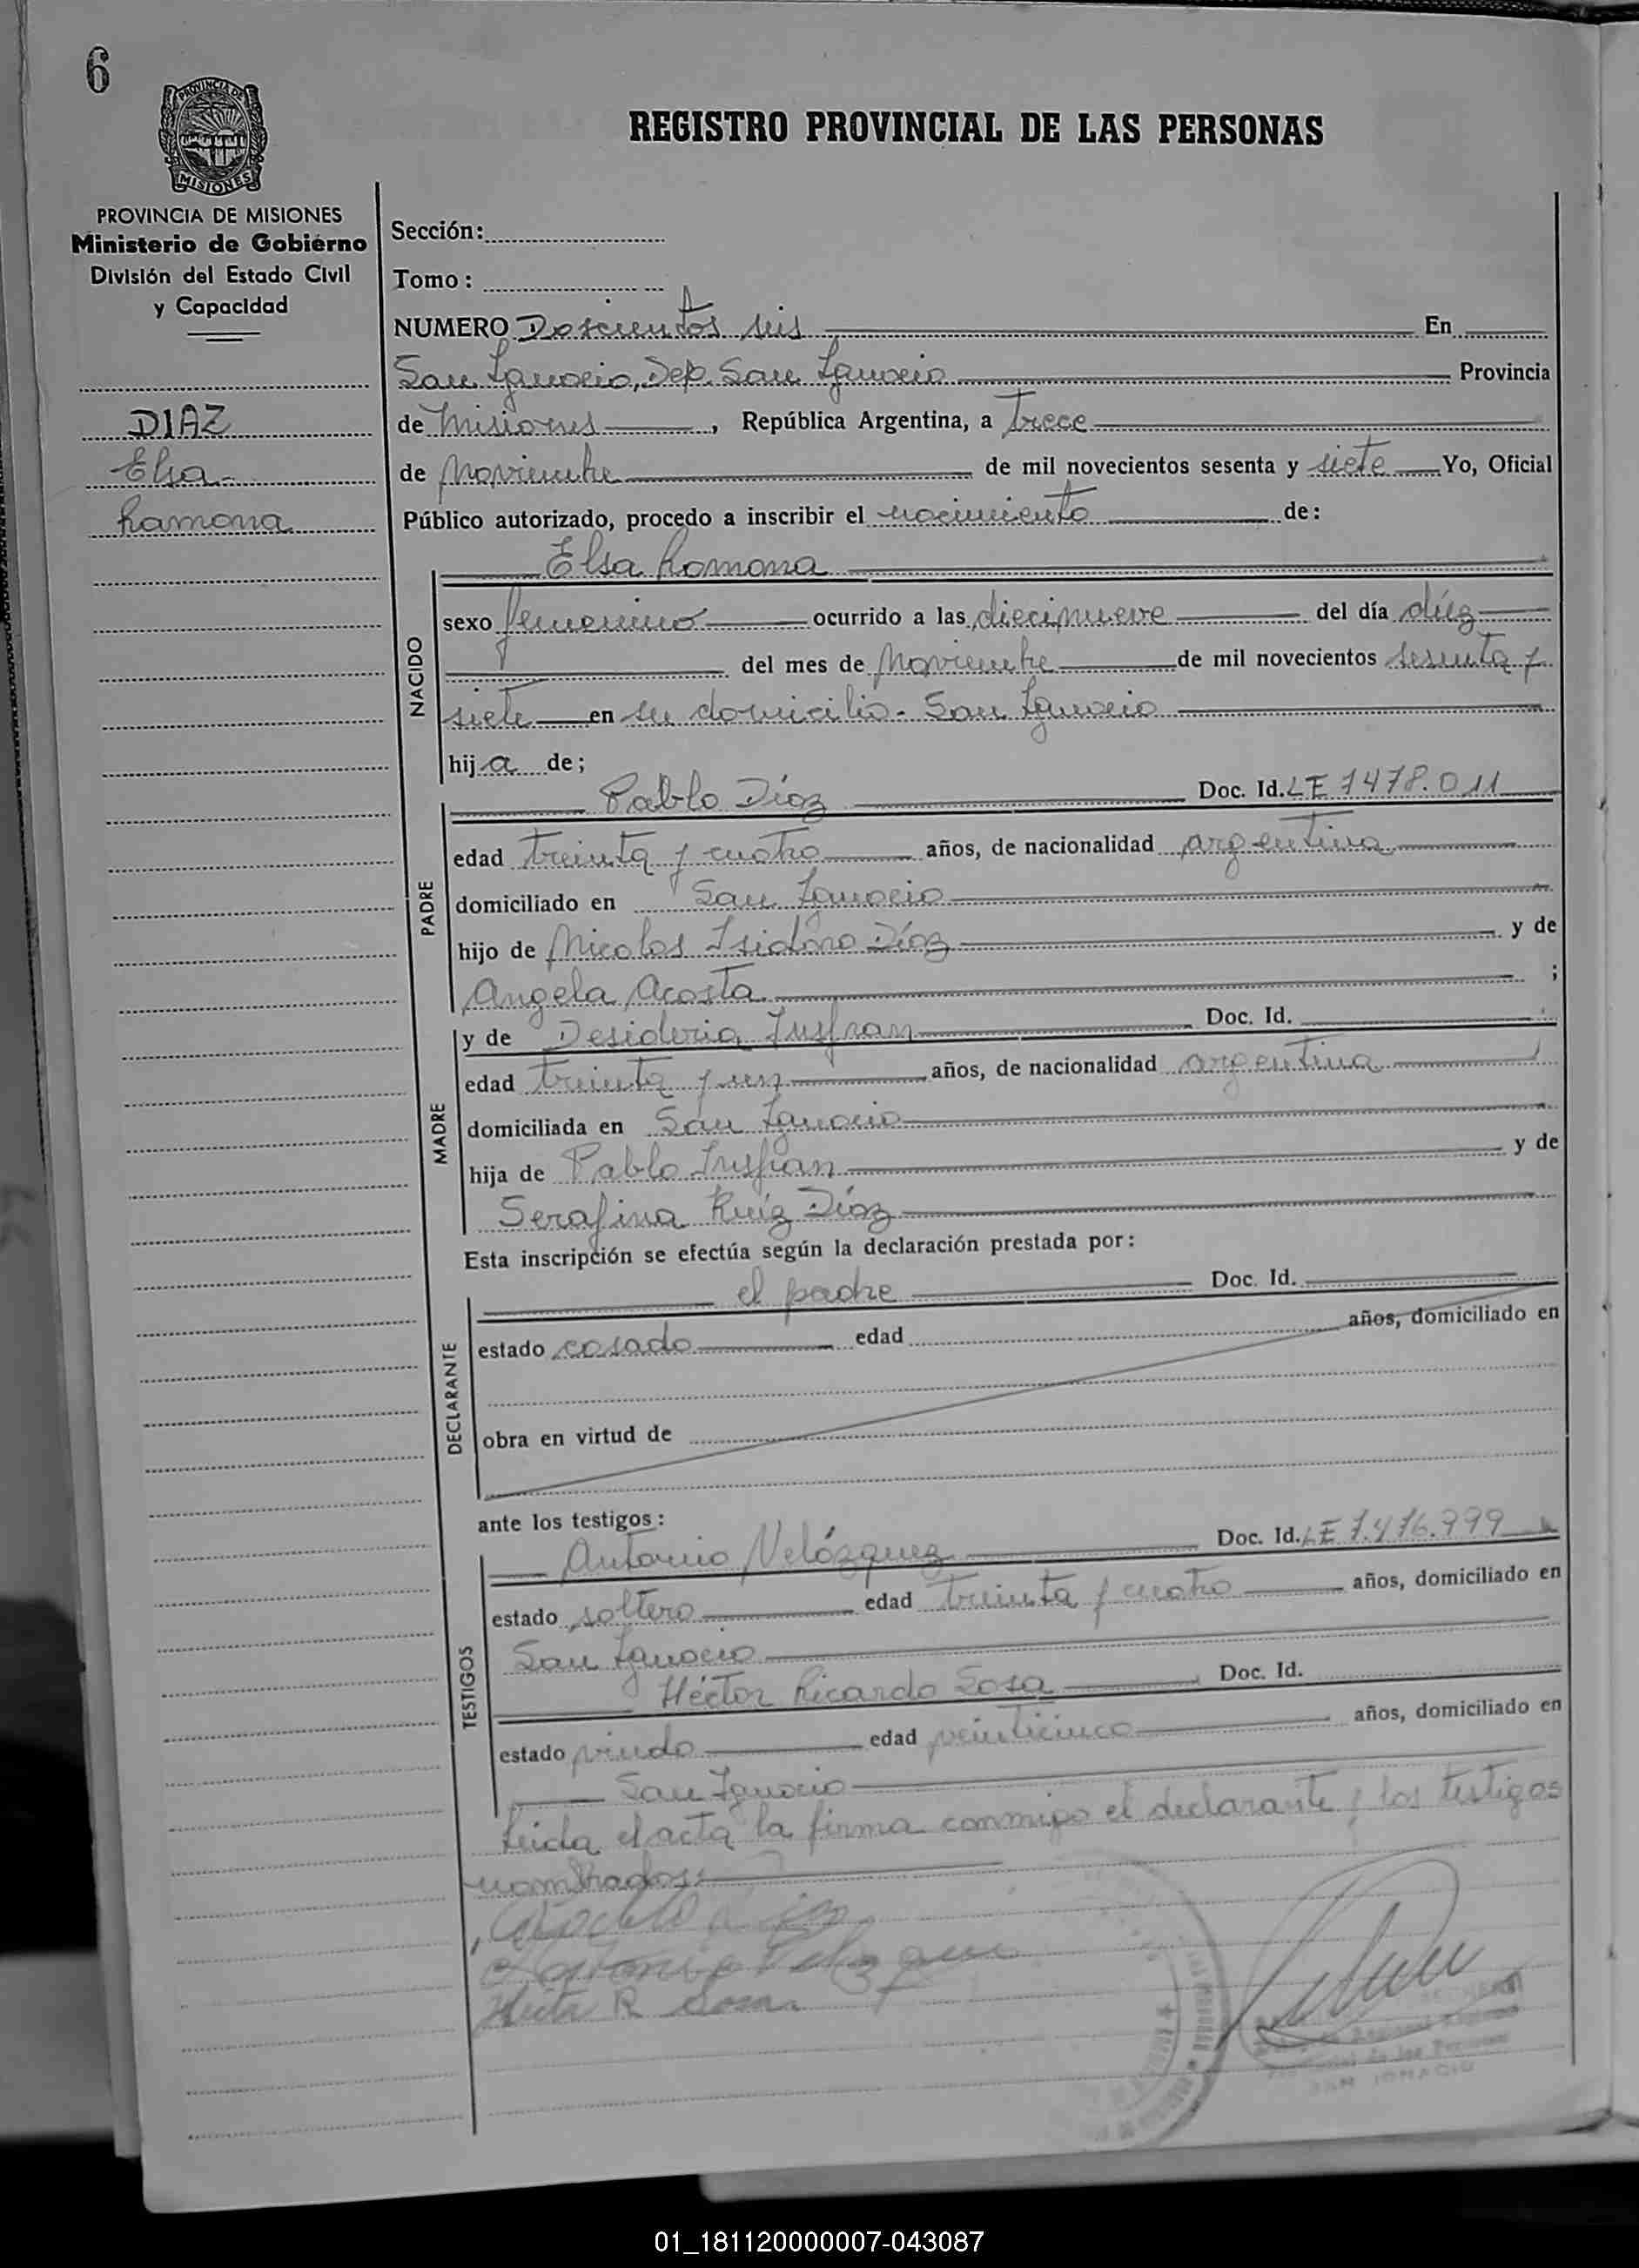 6
PROVINCIA DE
MISIONES
REGISTRO PROVINCIAL DE LAS PERSONAS
PROVINCIA DE MISIONES
Ministerio de Gobierno
División del Estado Civil
y Capacidad
DIAZ
Elsa
Ramona
Sección:
Tomo:
NUMERO Doscientos seis En
San Ignacio, Dep. San Ignacio Provincia
de Misiones, República Argentina, a Trece
de Noviembre de mil novecientos sesenta y siete Yo, Oficial
Público autorizado, procedo a inscribir el nacimiento de:
Elsa Ramona
NACIDO
sexo femenino ocurrido a las diecinueve del día diez
del mes de Noviembre de mil novecientos sesenta y
siete en su domicilio - San Ignacio
hija de;
PADRE
Pablo Díaz Doc. Id. LE 7478.011
edad treinta y cuatro años, de nacionalidad argentina
domiciliado en San Ignacio
hijo de Nicolas Isidoro Díaz y de
Angela Acosta ;
MADRE
y de Desideria Insfran Doc. Id.
edad treinta y un años, de nacionalidad argentina
domiciliada en San Ignacio
hija de Pablo Insfran y de
Serafina Ruiz Díaz
Esta inscripción se efectúa según la declaración prestada por:
DECLARANTE
el padre Doc. Id.
estado casado edad años, domiciliado en
obra en virtud de
ante los testigos:
TESTIGOS
Antonio Velázquez Doc. Id. LE 7.476.999
estado soltero edad treinta y cuatro años, domiciliado en
San Ignacio
Héctor Ricardo Sosa Doc. Id.
estado viudo edad veinticinco años, domiciliado en
San Ignacio
Leida el acta la firma conmigo el declarante y los testigos
nombrados:
Antonio Velazquez
Hector R Sosa
SAN IGNACIO
01_181120000007-043087